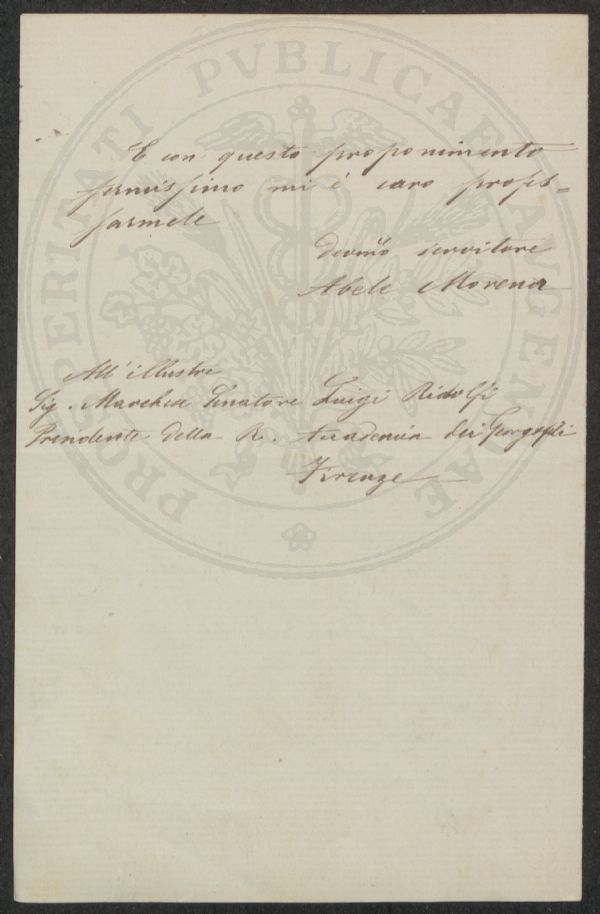 PROSPERITATI PVBLICAE AVGENDAE
E con questo proponimento
fermissimo mi è caro profes=
sarmele
Devmo servitore
Abele Morena
All'illustre
Sig. Marchese Senatore Luigi Ridolfi
Presidente della R. Accademia dei Georgofili
Firenze